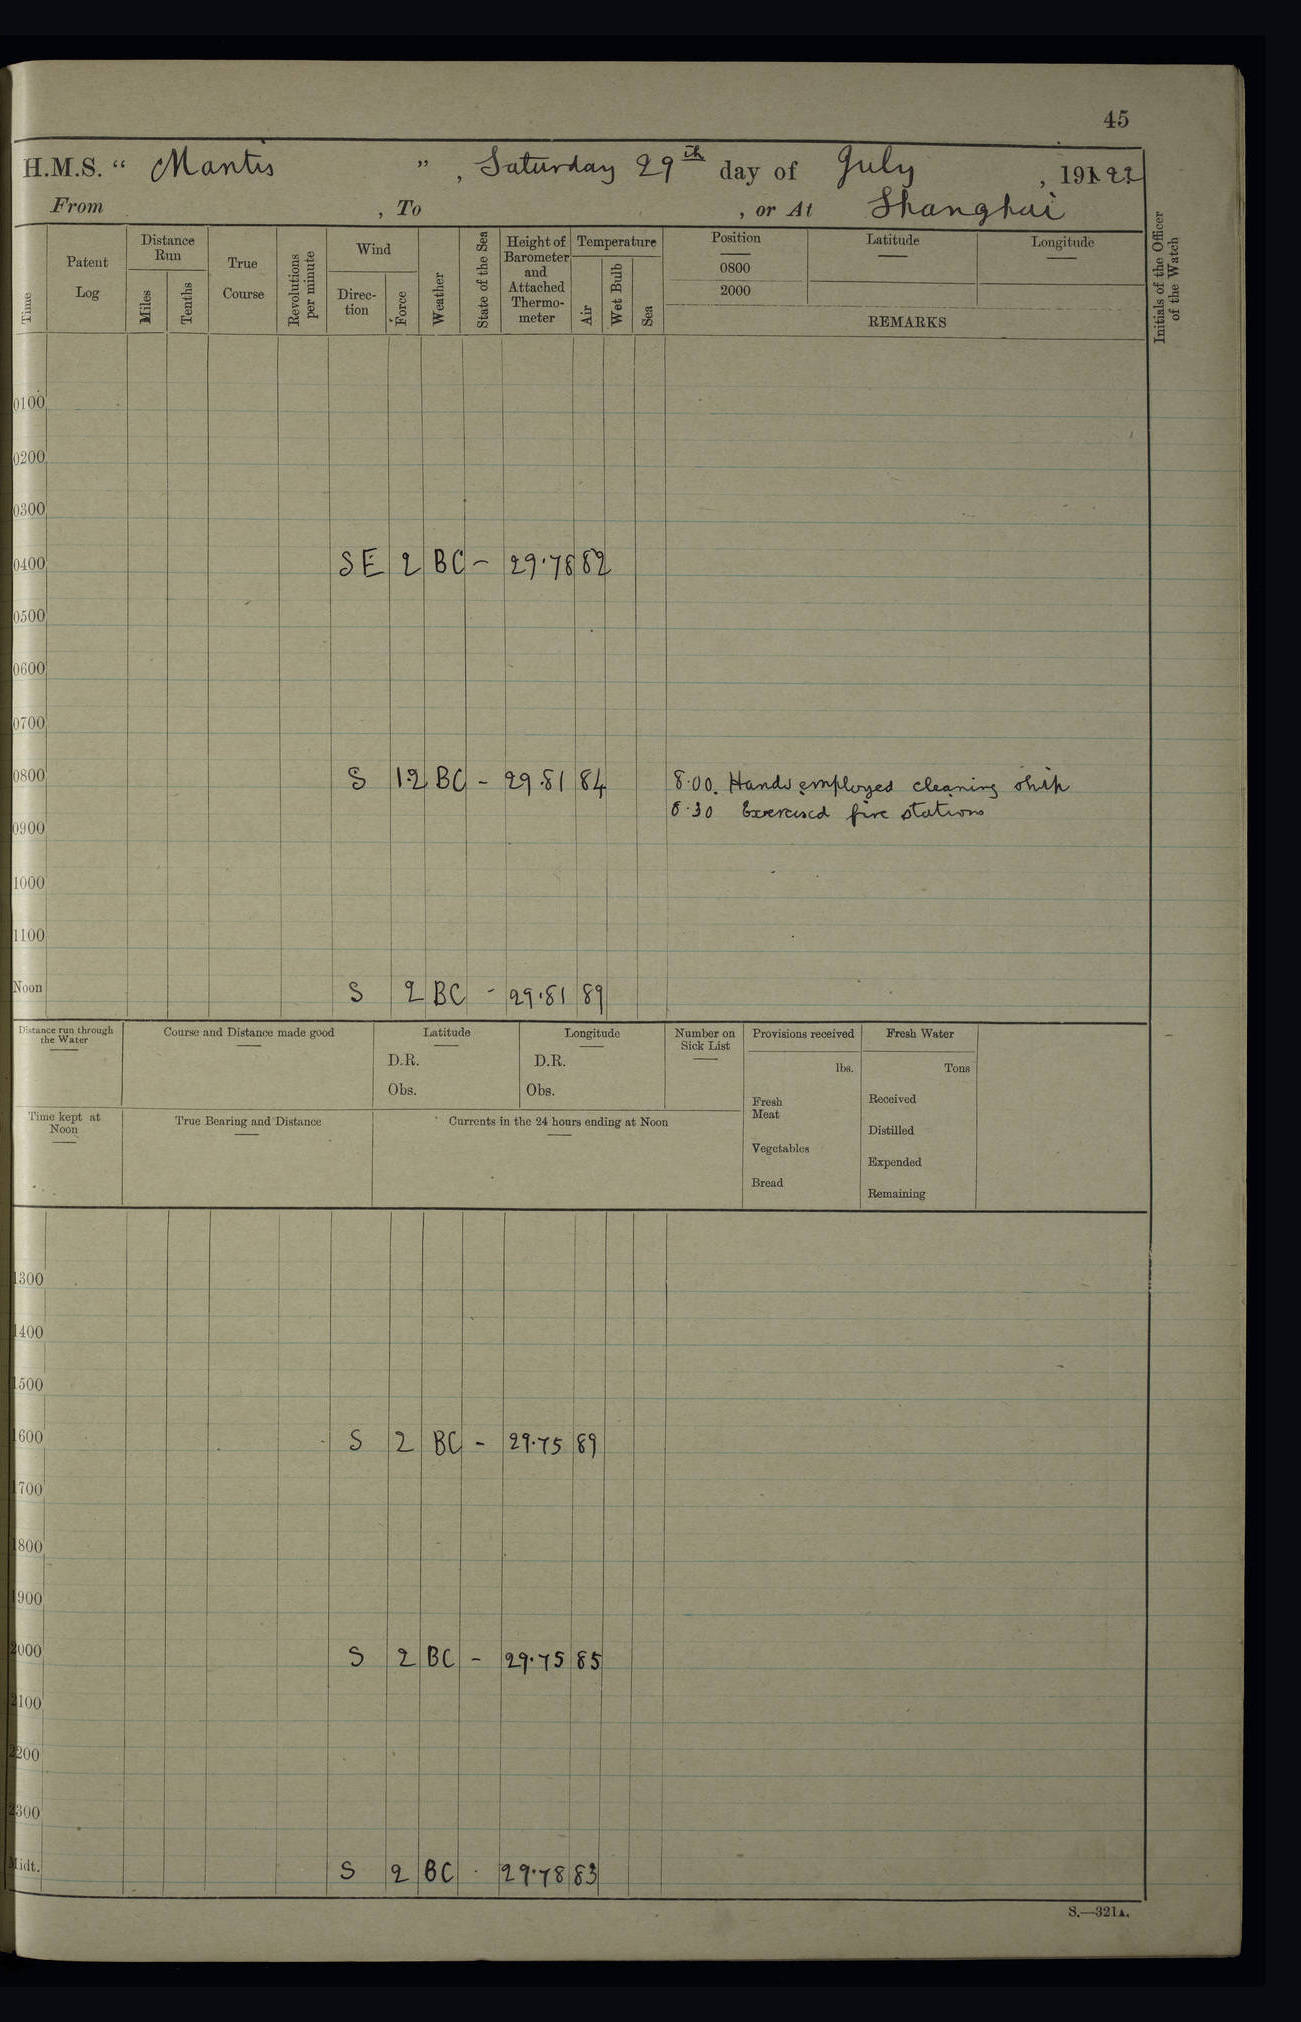 45
H.M.S. “ Mantis ” , Saturday 29th day of July , 191 22
From , To , or At Shanghai
Time
Patent Log
Distance Run
Miles
Tenths
True Course
Revolutions per minute
Wind
Direc-tion
Force
Weather
State of the Sea
Height of Barometer and Attached Thermo-meter
Temperature
Air
Wet Bulb
Sea
Position
0800
2000
Latitude
Longitude
REMARKS
Initials of the Officer of the Watch
0100
0200
0300
0400 SE 2 BC - 29.78 82
0500
0600
0700
0800 S 1.2 BC - 29.81 84 8.00. Hands employed cleaning ship
8.30 Exercised fire stations
0900
1000
1100
Noon S 2 BC - 29.81 89
Distance run through the Water
Course and Distance made good
Latitude
D.R.
Obs.
Longitude
D.R.
Obs.
Number on Sick List
Provisions received
lbs.
Fresh Meat
Vegetables
Bread
Fresh Water
Tons
Received
Distilled
Expended
Remaining
Time kept at Noon
True Bearing and Distance
Currents in the 24 hours ending at Noon
1300
1400
1500
1600 S 2 BC - 29.75 89
1700
1800
1900
2000 S 2 BC - 29.75 85
2100
2200
2300
Midt. S 2 BC - 29.78 83
S.—321A.